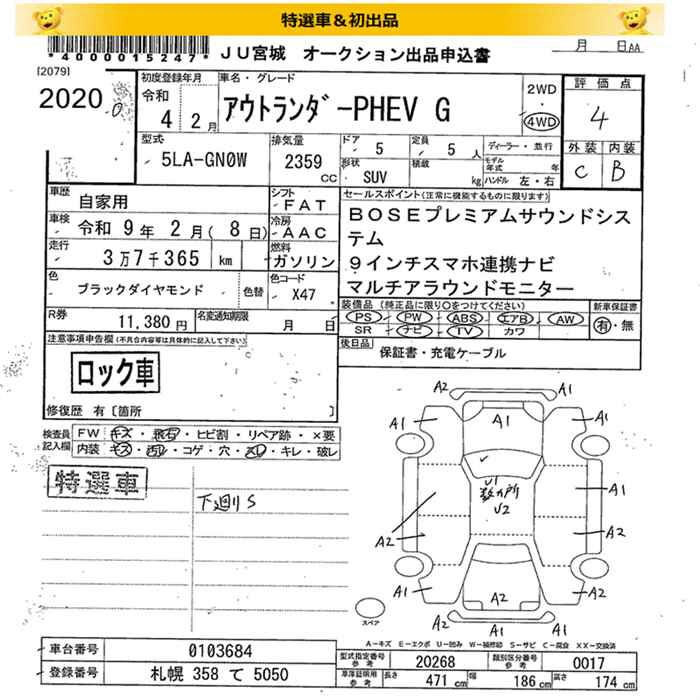 特選車&初出品
*4000015247*
JU宮城 オークション出品申込書
月 日AA
[2079]
2020
初度登録年月
令和
4 2月
車名・グレード
アウトランダーPHEV G
2WD
4WD
評価点
4
外装 内装
C B
型式
5LA-GN0W
排気量
2359
cc
ドア
5
定員
5 人
ディーラー・並行
形状
SUV
積載
kg
モデル年式 年
ハンドル 左・右
車歴
自家用
シフト
FAT
車検
令和 9年 2月(8日)
冷房
AAC
走行
3万7千365 km
燃料
ガソリン
セールスポイント(正常に機能するものに限ります)
BOSEプレミアムサウンドシス
テム
9インチスマホ連携ナビ
マルチアラウンドモニター
色
ブラックダイヤモンド
色替
色コード
X47
R券
11,380円
名変通知期限
月 日
装備品(純正品に限り○をつけてください)
PS PW ABS エアB AW
SR ナビ TV カワ
新車保証書
有・無
後日品
保証書・充電ケーブル
注意事項申告欄(不具合内容等は具体的に記入して下さい)
ロック車
修復歴 有〔箇所 〕
検査員記入欄
FW キズ・飛石・ヒビ割・リペア跡・×要
内装 キズ・汚れ・コゲ・穴・スレ・キレ・破レ
特選車
下廻りS
A2 A1
A1 A1 A1
U1
数ヵ所
U2
A1
A2 A2
A1 A2 A1
A2 A1
スペア
A-キズ E-エクボ U-凹み W-補修跡 S-サビ C-腐食 XX-交換済
車台番号
0103684
登録番号
札幌 358 て 5050
型式指定番号
参考
20268
類別区分番号
参考
0017
車庫証明用
参考
長さ 471 cm
幅 186 cm
高さ 174 cm